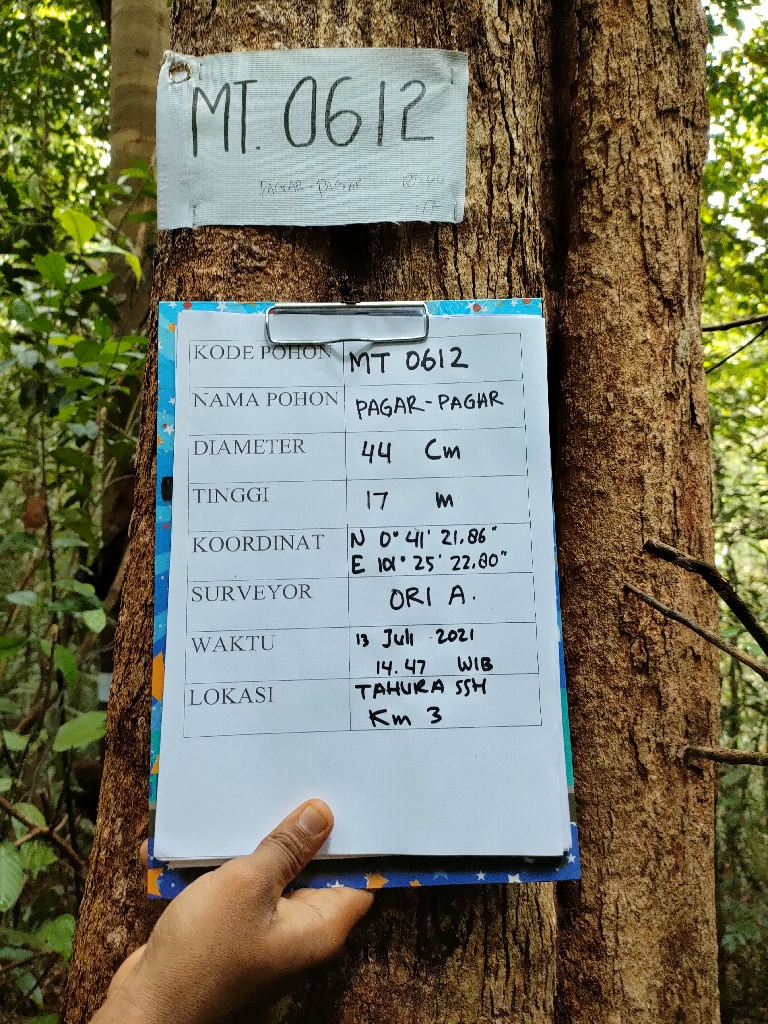 MT. 0612
PAGAR-PAGAR
KODE POHON MT 0612
NAMA POHON PAGAR-PAGAR
DIAMETER 44 Cm
TINGGI 17 m
KOORDINAT N 0° 41' 21.86"
E 101° 25' 22.80"
SURVEYOR ORI A.
WAKTU 13 Juli 2021
14.47 WIB
LOKASI TAHURA SSH
Km 3